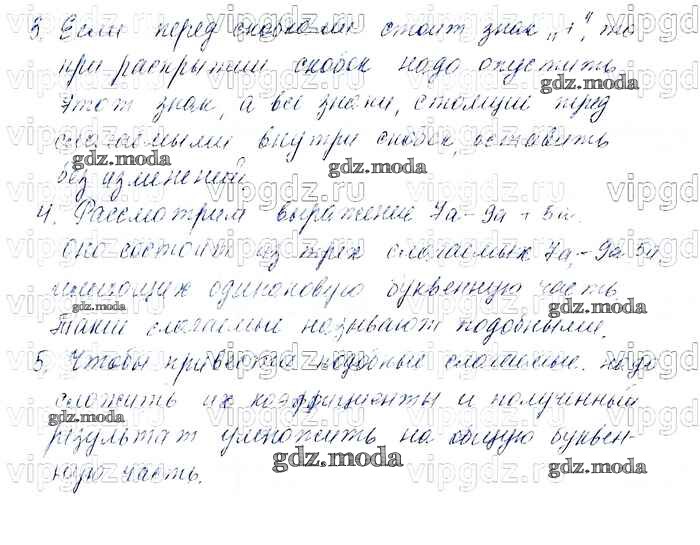 3. Если перед скобками стоит знак „+“, то
при раскрытии скобок надо опустить
этот знак, а все знаки, стоящие перед
слагаемыми внутри скобок, оставить
без изменений.
4. Рассмотрим выражение 7a - 9a + 5a.
оно состоит из трех слагаемых 7a, -9a 5a,
имеющих одинаковую буквенную часть
Такие слагаемые называют подобными.
5. Чтобы привести подобные слагаемые. надо
сложить их коэффициенты и полученный
результат умножить на общую буквен-
ную часть.
gdz.moda
gdz.moda
gdz.moda
gdz.moda
gdz.moda
gdz.moda
gdz.moda
vipgdz.ru